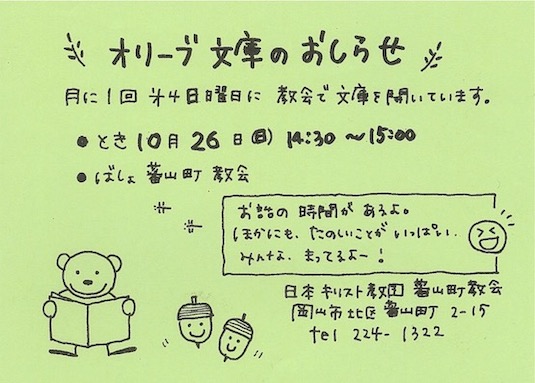 オリーブ文庫のおしらせ
月に1回 第4日曜日に 教会で文庫を開いています。
● とき 10月 26日(日) 14:30 〜15:00
● ばしょ 蕃山町 教会
お話の 時間が あるよ。
ほかにも、たのしいことが いっぱい.
みんな、まってるよー！
日本キリスト教団 蕃山町教会
岡山市北区 蕃山町 2-15
tel 224-1322